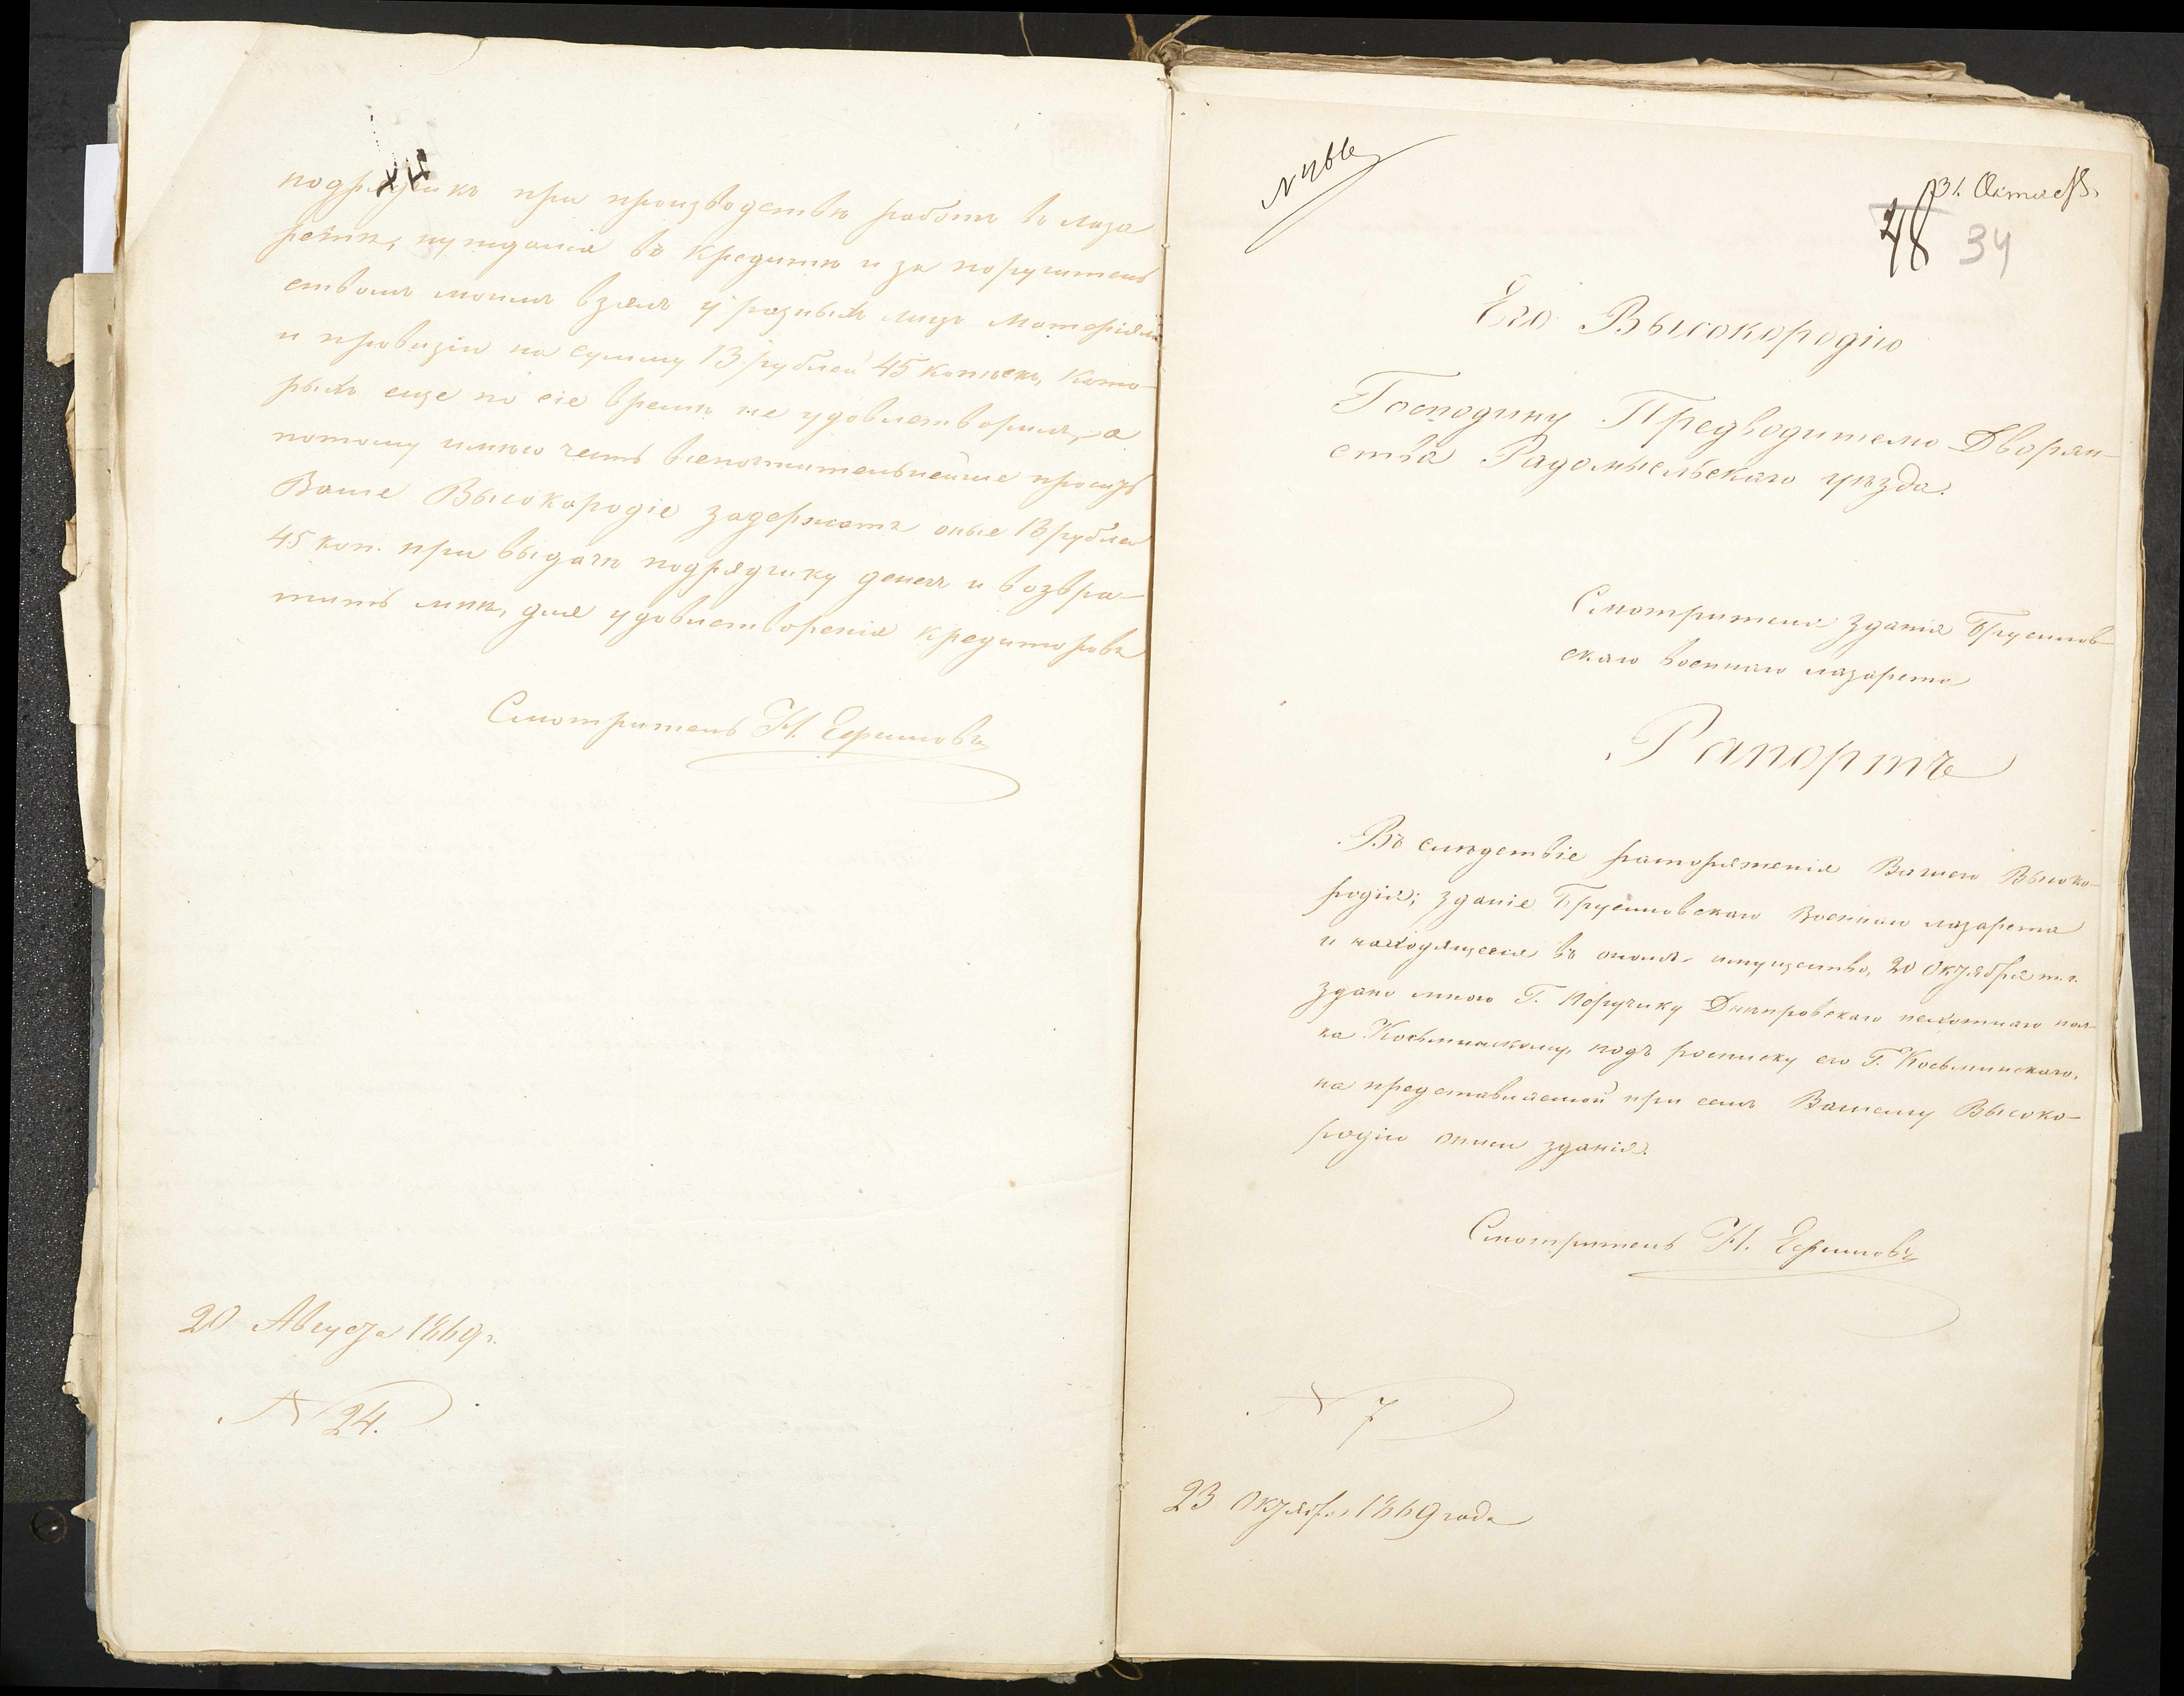 подрядчикъ при производствѣ работъ въ лаза
ретѣ, нуждаясь въ кредитѣ и за поручитель
ствомъ моимъ взялъ у разныхъ лицъ матеріялы
и провизію на сумму 13 рублей 45 копѣекъ, кото-
рыхъ еще по сіе время не удовлетворилъ, а
потому имѣю честь всепочтительнейше просить
Ваше Высокородіе задержать оные 13 рублей
45 коп. при выдачѣ подрядчику денегъ и возвра-
тить мнѣ, для удовлетворенія кредиторовъ
Смотритель Н. Ефимовъ
20 Августа 1869 г.
N 24.
31. Октября
48 34
Его Высокородію
Господину Предводителю Дворян-
ства Радомысльскаго уѣзда.
Смотрителя зданія Брусилов-
скаго военнаго лазарета
Рапортъ
Въ слѣдствіе распоряженія Вашего Высоко-
родія; зданіе Брусиловскаго Военнаго лазарета
и находящееся въ ономъ имущество, 20 Октября т. г.
здано мною Г. Поручику Днѣпровскаго пехотнаго пол-
ка Косьминскому, подъ росписку его Г. Косьминскаго,
на представляемой при семъ Вашему Высоко-
родію описи зданія.
Смотритель Н. Ефимовъ
N 7
23 Октября 1869 года